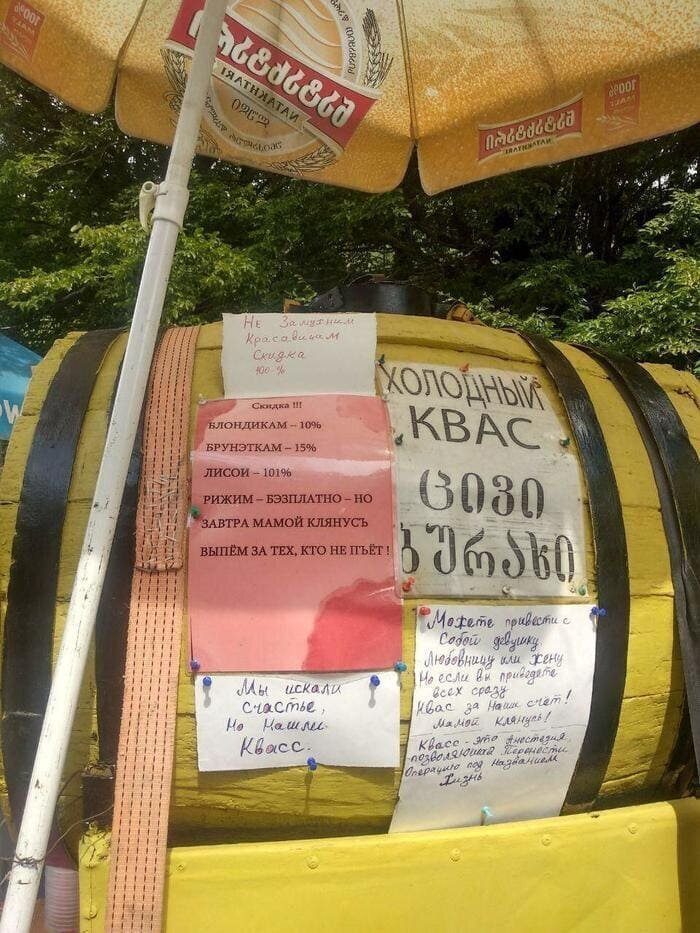 100%
MALT
ნატახტარი
NATAKHTARI
ნატახტარი
NATAKHTARI
100%
MALT
Не Замужним
Красавицам
Скидка
100-%
Скидка !!!
БЛОНДИКАМ – 10%
БРУНЭТКАМ – 15%
ЛИСОИ – 101%
РИЖИМ – БЭЗПЛАТНО – НО
ЗАВТРА МАМОЙ КЛЯНУСЪ
ВЫПЁМ ЗА ТЕХ, КТО НЕ ПЪЁТ !
ХОЛОДНЫЙ
КВАС
ცივი
ბურახი
Мы искали
счастье,
Но Нашли
Квасс.
Можете привести с
Собой девушку
Любовницу или жену
Но если вы приведёте
всех сразу
Квас за Наш счёт!
Мамой Клянусь!
Квасс - это Анестезия,
позволяющая Перенести
Операцию под Названием
Жизнь